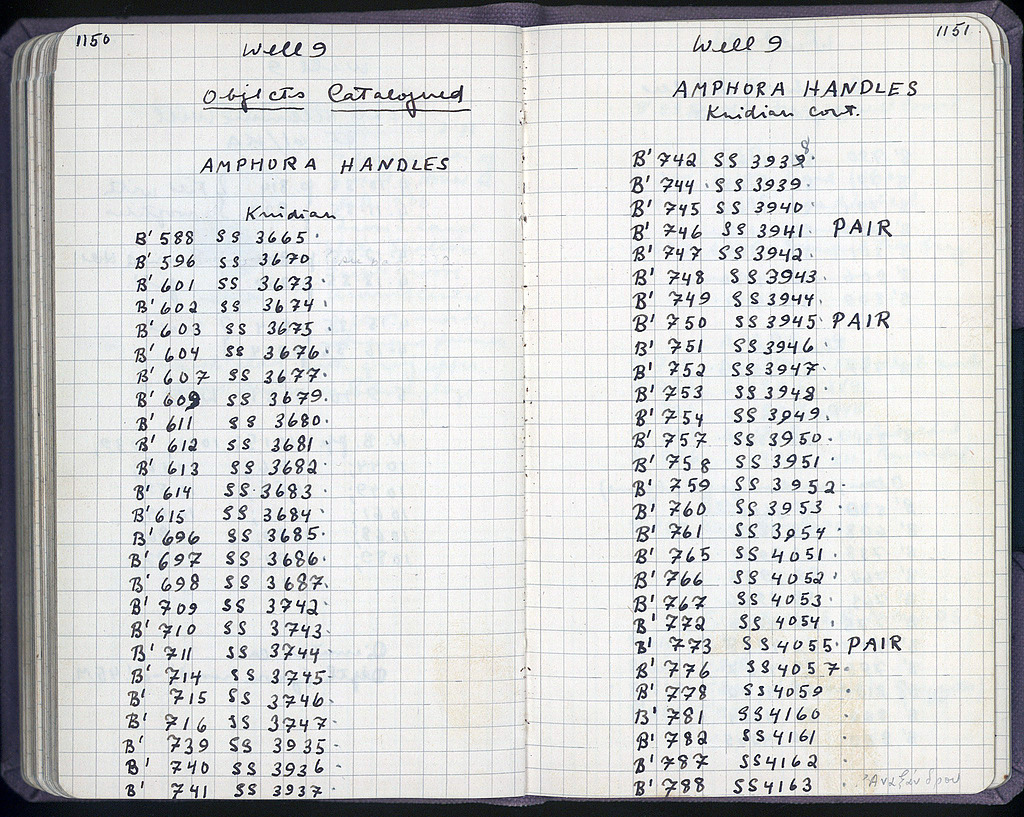 1150
Well 9
Objects Catalogued
AMPHORA HANDLES
Knidian
B' 588 SS 3665.
B' 596 SS 3670
B' 601 SS 3673.
B' 602 SS 3674.
B' 603 SS 3675.
B' 604 SS 3676.
B' 607 SS 3677.
B' 609 SS 3679.
B' 611 SS 3680.
B' 612 SS 3681.
B' 613 SS 3682.
B' 614 SS 3683.
B' 615 SS 3684.
B' 696 SS 3685.
B' 697 SS 3686.
B' 698 SS 3687.
B' 709 SS 3742.
B' 710 SS 3743.
B' 711 SS 3744.
B' 714 SS 3745.
B' 715 SS 3746.
B' 716 SS 3747.
B' 739 SS 3935.
B' 740 SS 3936.
B' 741 SS 3937.
1151
Well 9
AMPHORA HANDLES
Knidian cont.
B' 742 SS 3938.
B' 744 SS 3939.
B' 745 SS 3940.
B' 746 SS 3941. PAIR
B' 747 SS 3942.
B' 748 SS 3943.
B' 749 SS 3944.
B' 750 SS 3945. PAIR
B' 751 SS 3946.
B' 752 SS 3947.
B' 753 SS 3948.
B' 754 SS 3949.
B' 757 SS 3950.
B' 758 SS 3951.
B' 759 SS 3952.
B' 760 SS 3953.
B' 761 SS 3954.
B' 765 SS 4051.
B' 766 SS 4052.
B' 767 SS 4053.
B' 772 SS 4054.
B' 773 SS 4055. PAIR
B' 776 SS 4057.
B' 778 SS 4059.
B' 781 SS 4160.
B' 782 SS 4161.
B' 787 SS 4162.
B' 788 SS 4163.